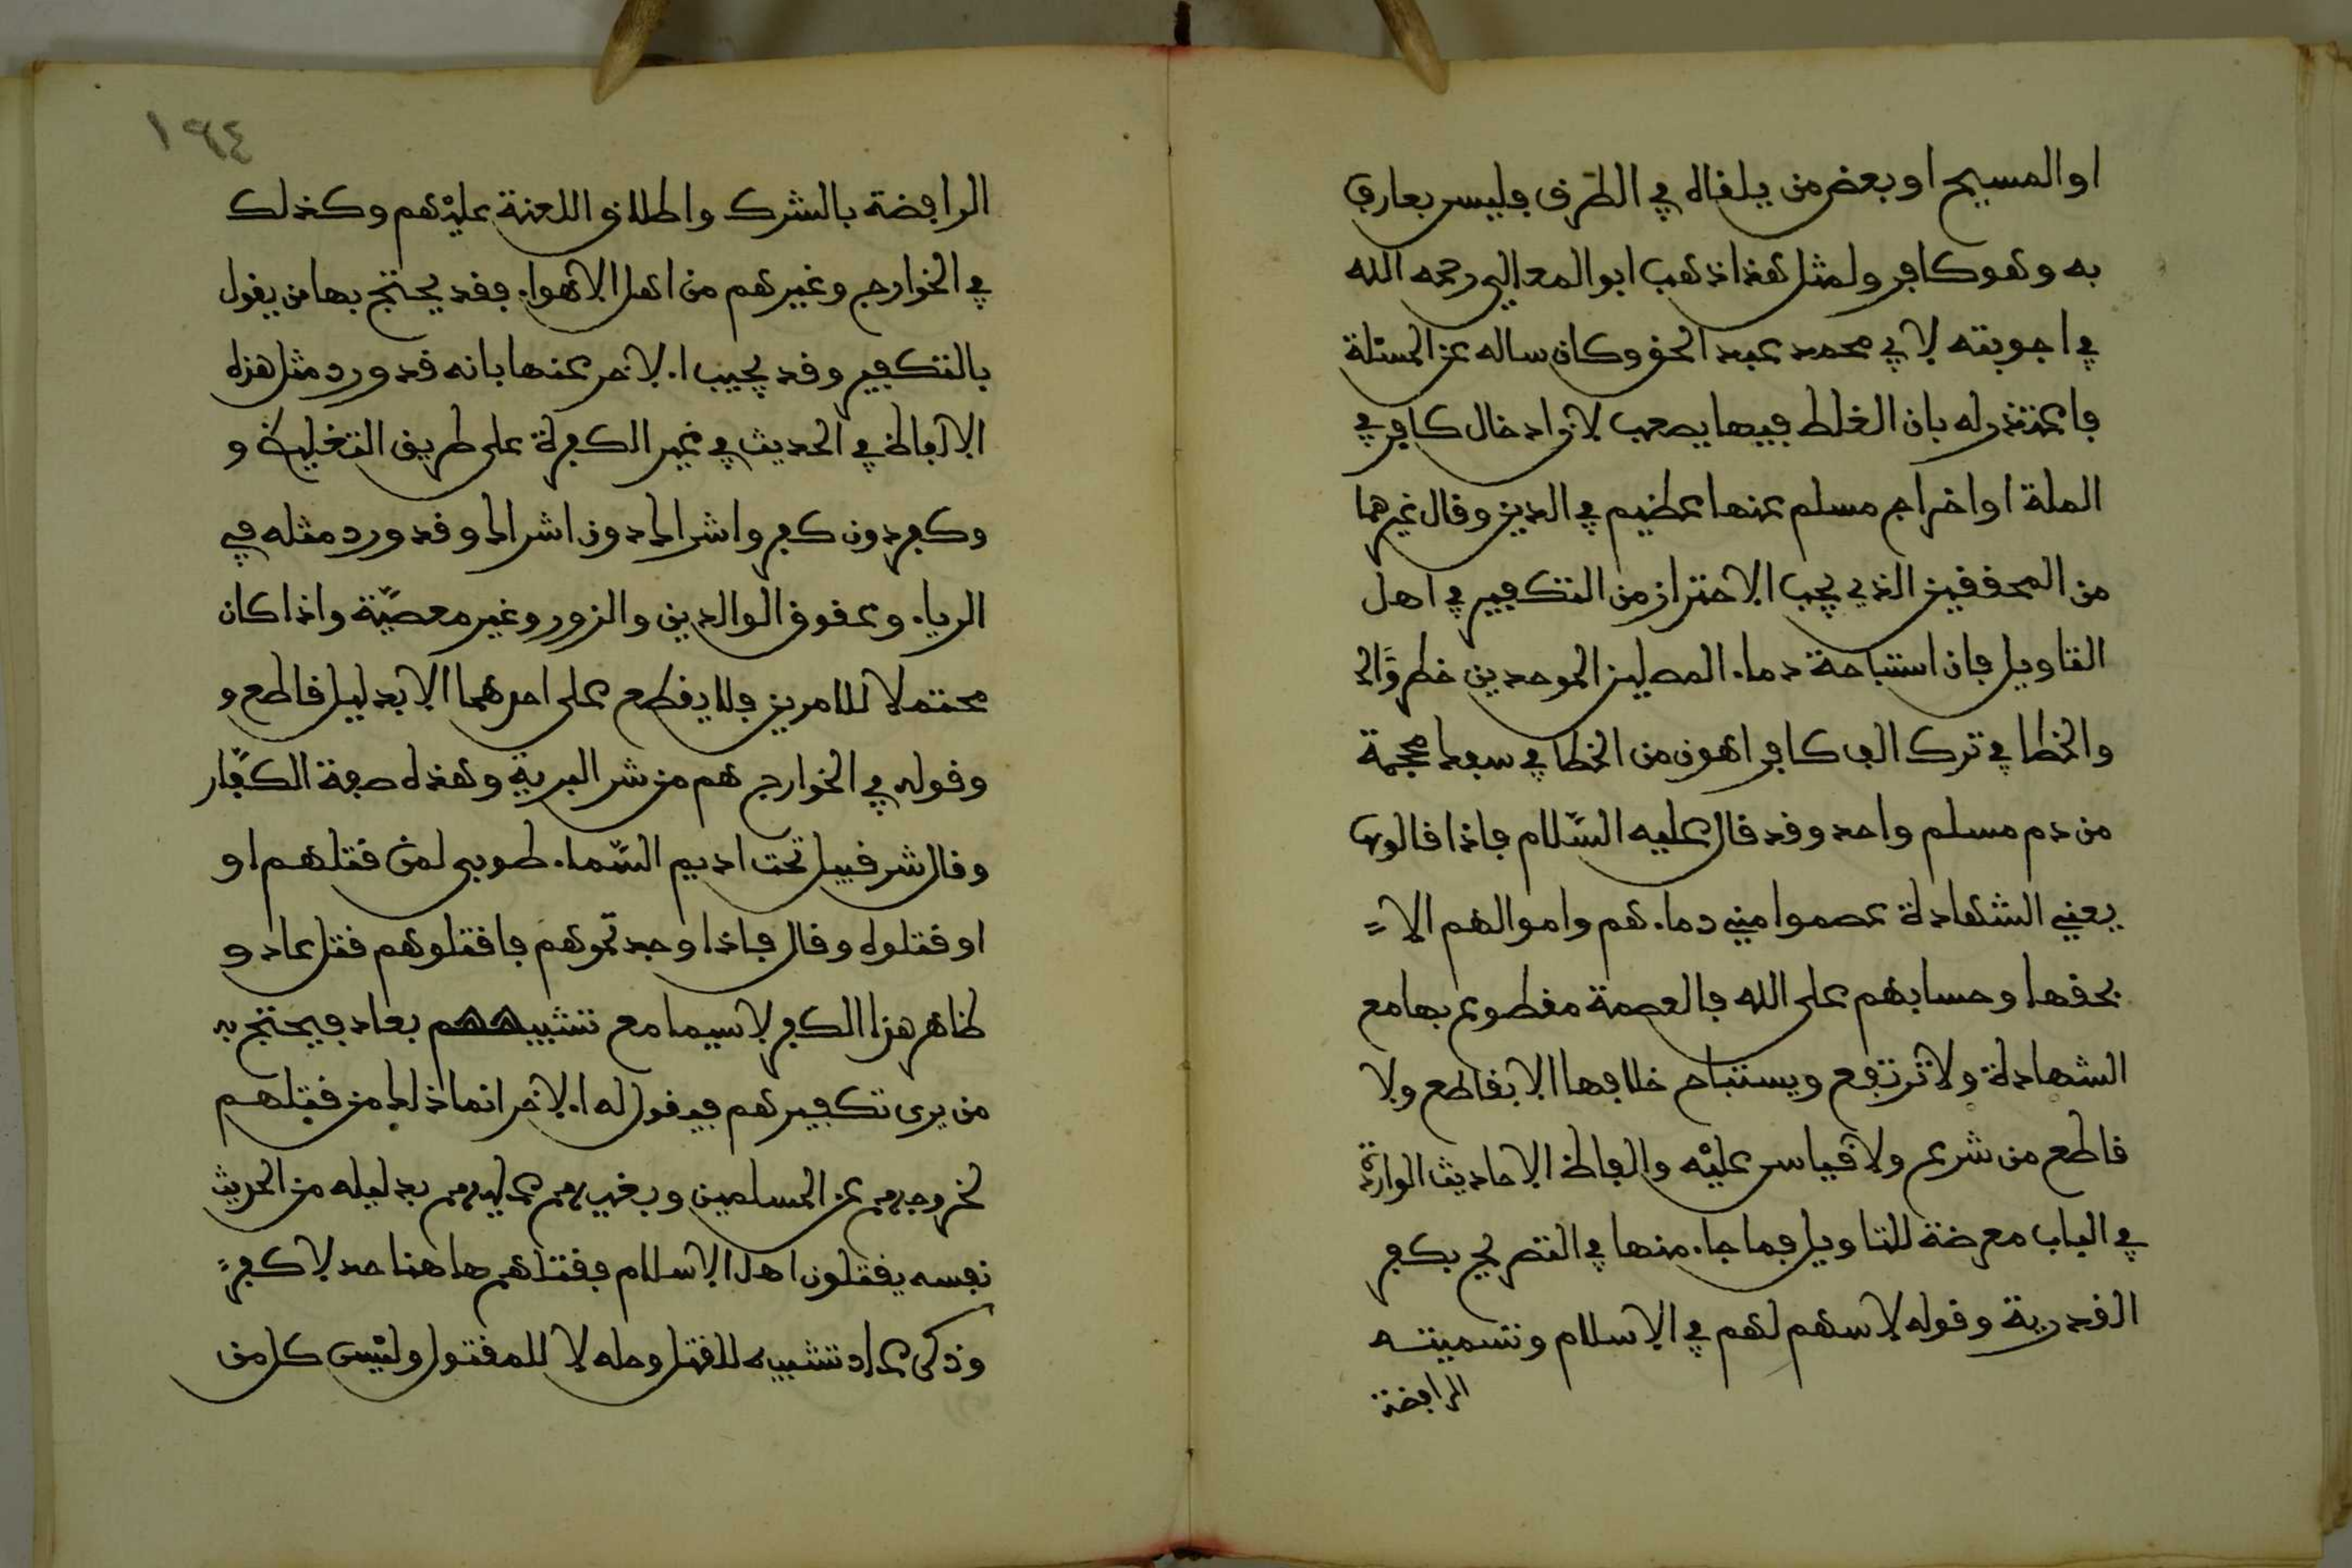 او المسيح او بعض من يلقاه في الطرق فليس بعارف
به وهو كافر ولمثل هذا ذهب ابو المعالي رحمه الله
في اجوبته لابي محمد عبد الحق وكان ساله عن المسئلة
فاعتذر له بان الغلط فيها يصعب لان ادخال كافر في
الملة او اخراج مسلم عنها عظيم في الدين وقال غيرهما
من المحققين الذي يجب الاحتراز من التكفير في اهل
التاويل فان استباحة دماء المصلين الموحدين خطر وَّالخ
والخطا في ترك الف كافر اهون من الخطا في سفك محجمة
من دم مسلم واحد وقد قال عليه السّلام فاذا قالوها
يعني الشهادة عصموا مني دماءهم واموالهم الا
بحقها وحسابهم على الله فالعصمة مقطوع بها مع
الشهادة ولا ترتفع ويستباح خلافها الا بقاطع ولا
قاطع من شرع ولا قياس عليْه والفاظ الاحاديث الواردة
في الباب معرضة للتاويل فما جاء منها في التصريح بكفر
القدرية وقوله لا سهم لهم في الاسلام وتسميته
الرافضة
١٦٤
الرافضة بالشرك واطلاق اللعنة عليْهم وكذلك
في الخوارج وغيرهم من اهل الاهواء فقد يحتج بها من يقول
بالتكفير وقد يجيب الاخر عنها بانه قد ورد مثل هذه
الالفاظ في الحديث في غير الكفرة على طريق التغليظ و
وكفر دون كفر واشراك دون اشراك وقد ورد مثله في
الرياء وعقوق الوالدين والزور وغير معصيّة واذا كان
محتملا للامرين فلا يقطع على احدهما الا بدليل قاطع و
وقوله في الخوارج هم من شر البرية وهذه صفة الكفّار
وقال شر قبيل تحت اديم السّماء طوبى لمن قتلهم او
او قتلوه وقال فاذا وجدتموهم فاقتلوهم قتل عاد و
ظاهر هذا الكفر لا سيما مع تشبيههم بعاد فيحتج به
من يرى تكفيرهم فيقول له الاخر انما ذلك من قتلهم
لخروجهم عن المسلمين وبغيهم عليهم بدليله من الحديث
نفسه يقتلون اهل الاسلام فقتلهم هاهنا حد لا كفر
وذكر عاد تشبيه للقتل وحله لا للمقتول وليْس كل من